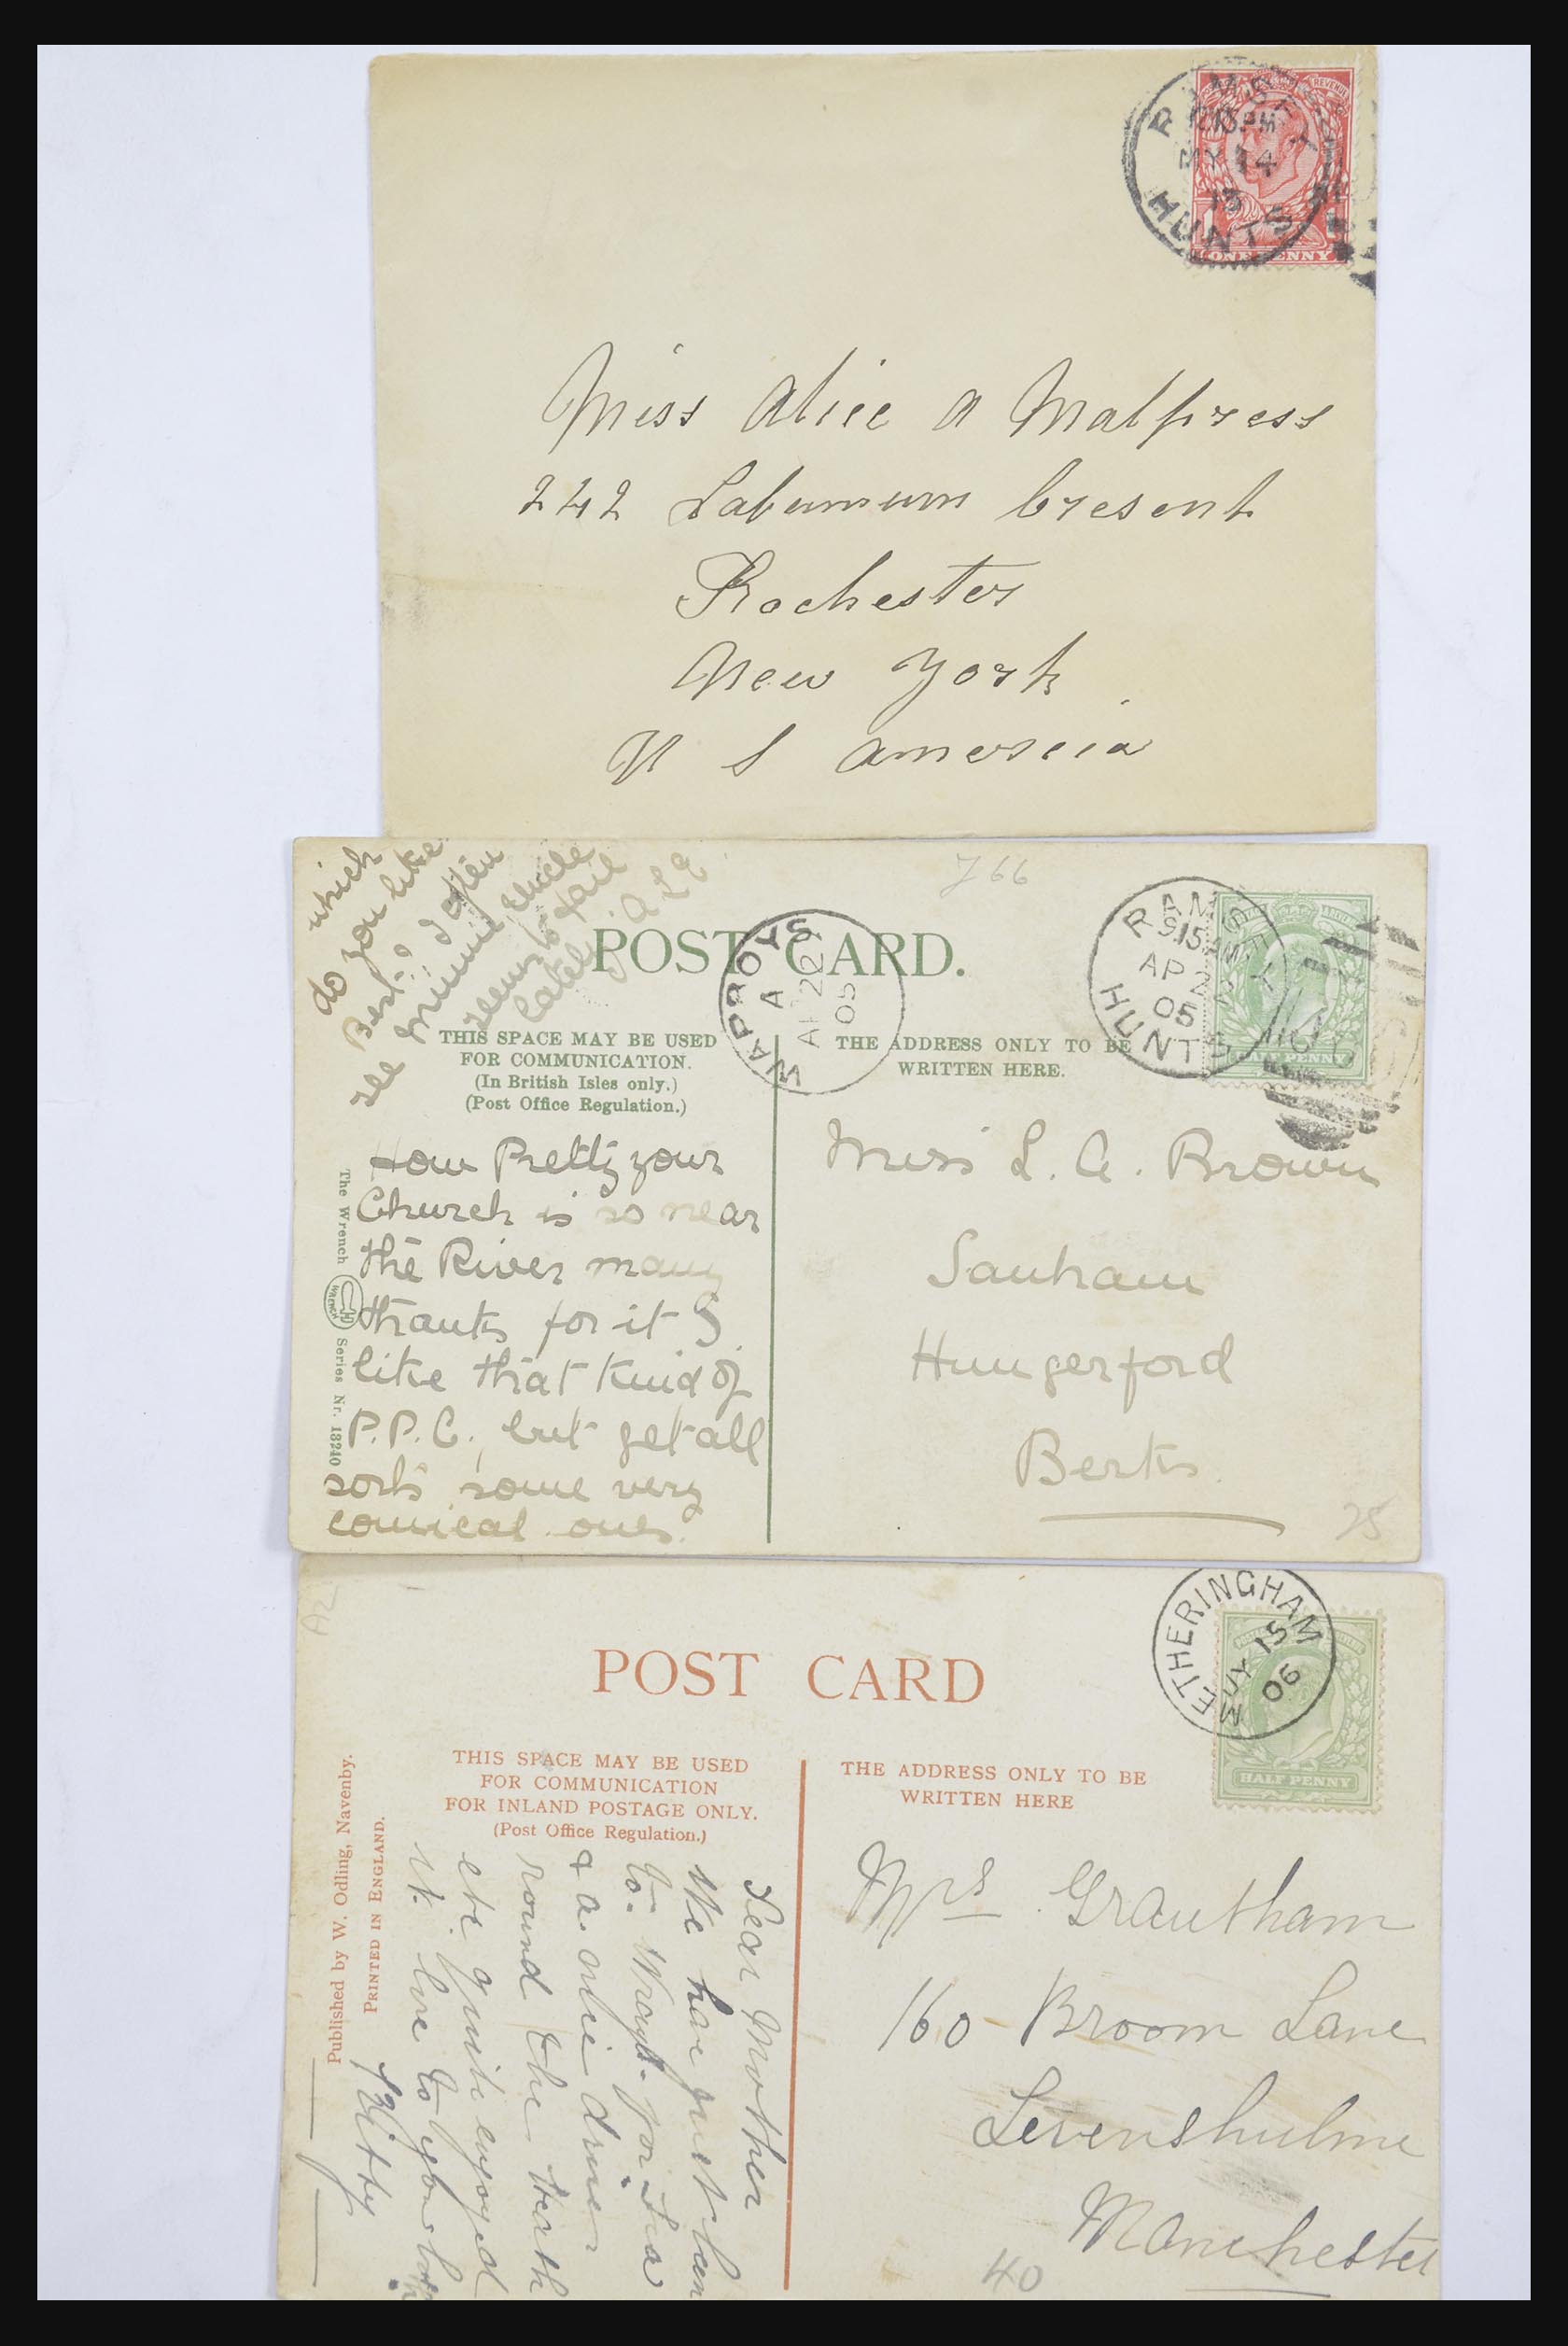 RAMSEY
12.15 PM
MY 14
13
HUNTS
ONE PENNY
Miss Alice A Malpress
242 Laburnum Cresent
Rochester
New York
U S America
766
which
do you like
Best? I often
see Minnie Uncle
seems to fail
lately. A L E
POST CARD.
WADROYS
A
AP 22
05
RAMSEY
9.15 AM
AP 2
05
HUNTS
HALF PENNY
THIS SPACE MAY BE USED
FOR COMMUNICATION.
(In British Isles only.)
(Post Office Regulation.)
THE ADDRESS ONLY TO BE
WRITTEN HERE.
The Wrench
WRENCH
Series Nr. 13240
How Pretty your
Church is so near
the River many
thanks for it I
like that kind of
P.P.C., but get all
sorts some very
comical ones.
Miss L. A. Brown
Sanham
Hungerford
Berks.
75
A2
METHERINGHAM
JY 15
06
HALF PENNY
POST CARD
THIS SPACE MAY BE USED
FOR COMMUNICATION
FOR INLAND POSTAGE ONLY.
(Post Office Regulation.)
THE ADDRESS ONLY TO BE
WRITTEN HERE
Published by W. Odling, Navenby.
PRINTED IN ENGLAND.
Dear Mother
We have just been
to. for Tea
& a drive
round the Heath
etc quite enjoyed
it. love to you both
Kitty
Mrs Grantham
160 Broom Lane
Levenshulme
Manchester
40